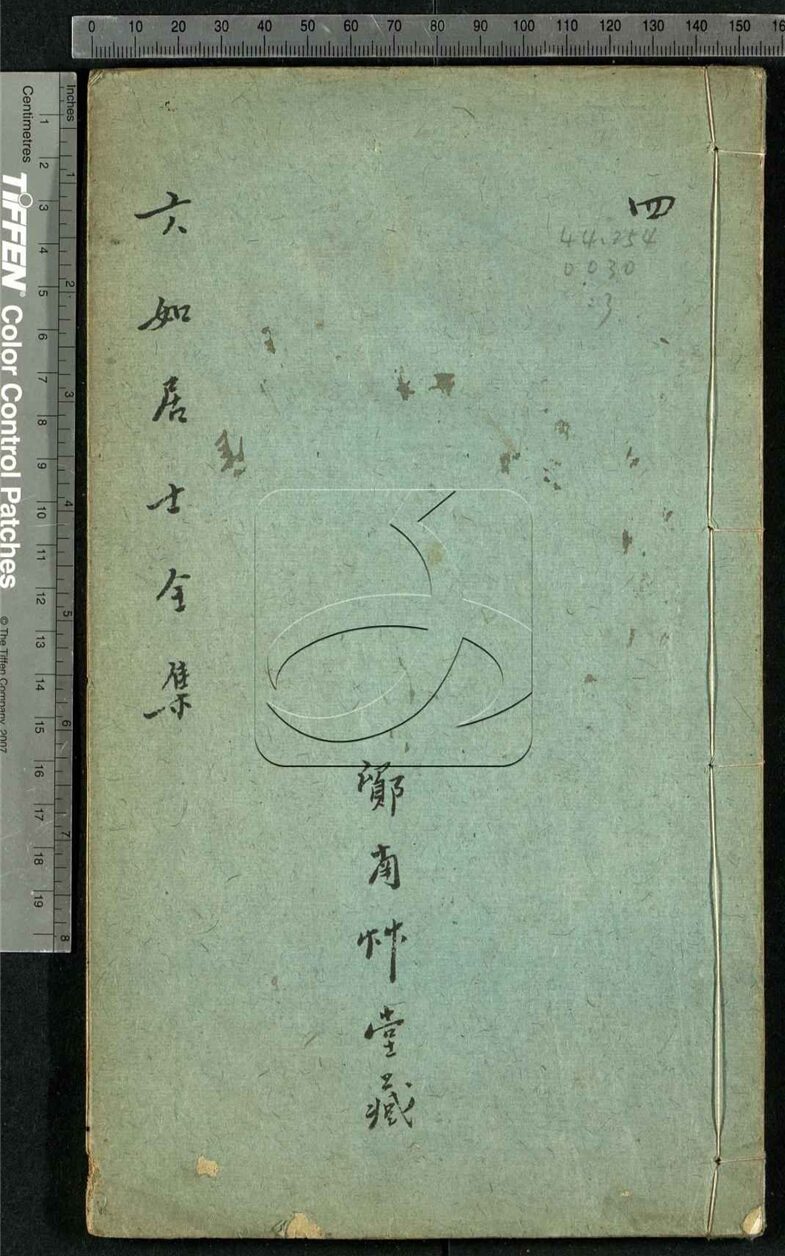 四
44.254
0030
:3
六如居士全集
鄭南艸堂藏
0 10 20 30 40 50 60 70 80 90 100 110 120 130 140 150 16
Inches
1 2 3 4 5 6 7 8
Centimetres
1 2 3 4 5 6 7 8 9 10 11 12 13 14 15 16 17 18 19
TIFFEN® Color Control Patches
© The Tiffen Company, 2007